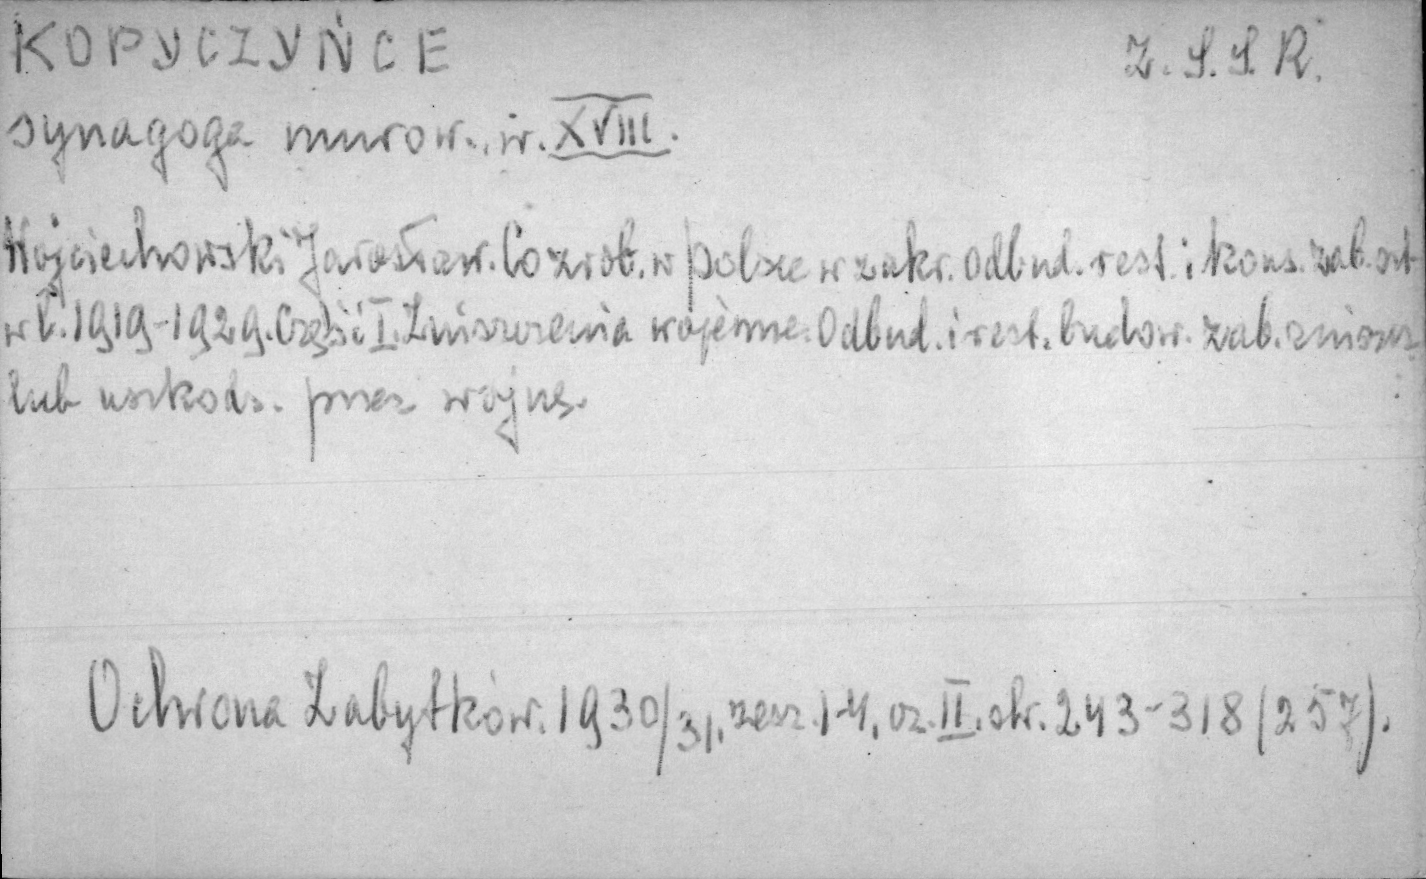 KOPYCZYŃCE Z.S.S.R.
synagoga murow., w. XVIII.
Wojciechowski Jarosław. Co zrob. w Polsce w zakr. odbud. rest. i kons. zab. szt
w l. 1919-1929. Część I. Zniszczenia wojenne. Odbud. i rest. budow. zab. zniszcz.
lub uszkodz. przez wojnę.
Ochrona Zabytków. 1930/31, zesz. 1-4, cz. II. str. 243-318 (257).